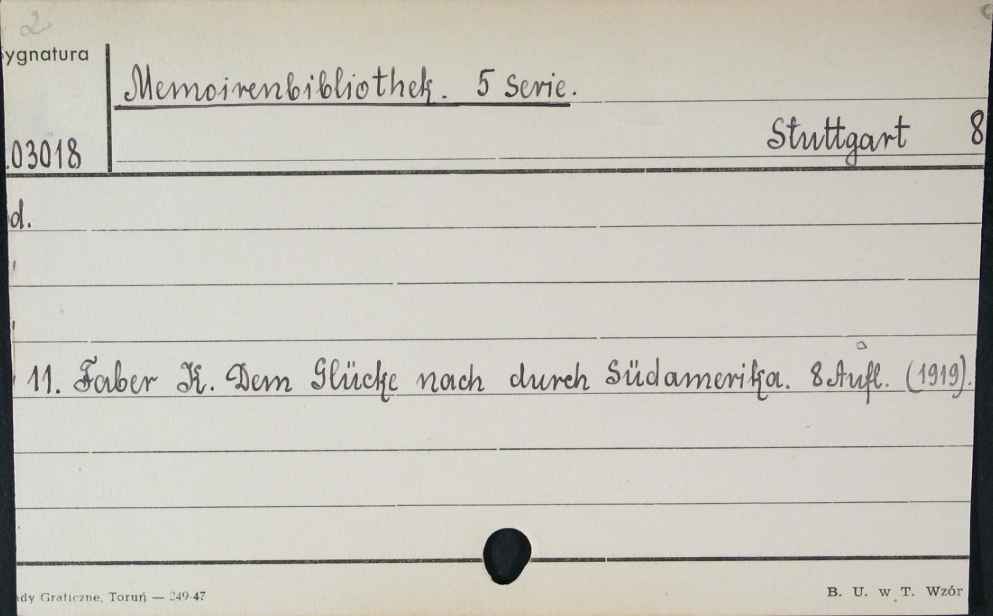 2
ygnatura
Memoirenbibliothek. 5 Serie.
Stuttgart 8
.03018
d.
11. Faber K. Dem Glücke nach durch Südamerika. 8 Aufl. (1919).
dy Graficzne, Toruń — 249-47
B. U. w T. Wzór